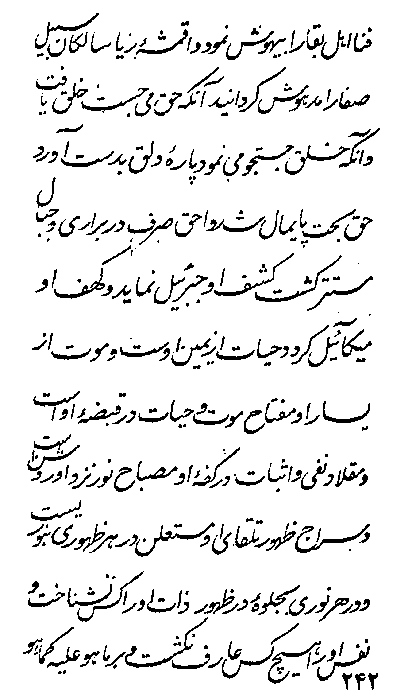 فنا اهل بقا را بیهوش نمود و اقمشهٔ زیبا سالکان سبیل
صفا را مدهوش گردانید آنکه حق می جست خلق یافت
و آنکه خلق جستجو می نمود پارهٔ دلق بدست آورد
حق بحت پایمال شد و احق صرف در براری و جبال
مستتر گشت کشف او جبرئیل نماید و کهف او
میکائیل گردد حیات از یمین اوست و موت از
یسار او مفتاح موت و حیات در قبضهٔ اوست
و مقلاد نفی و اثبات در کفهٔ او مصباح نور نزد او روشن است
و سراج ظهور تلقای او مستعلن در هر ظهوری بنوریست
و در هر نوری بجلوهٔ در ظهور ذات او را کس نشناخت و
نفس او را هیچ کس عارف نگشت و بر ما هو علیه کما هو
۲۴۲